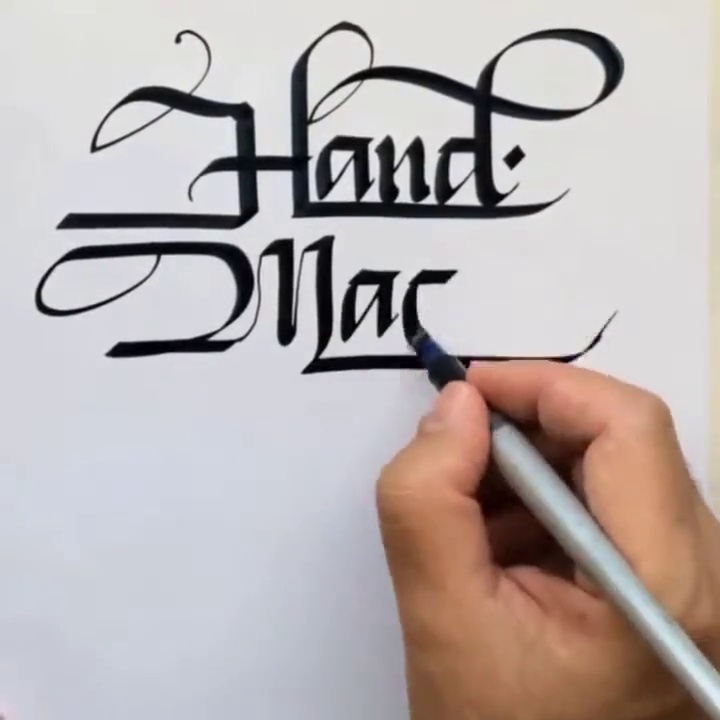 Hand.
Mac